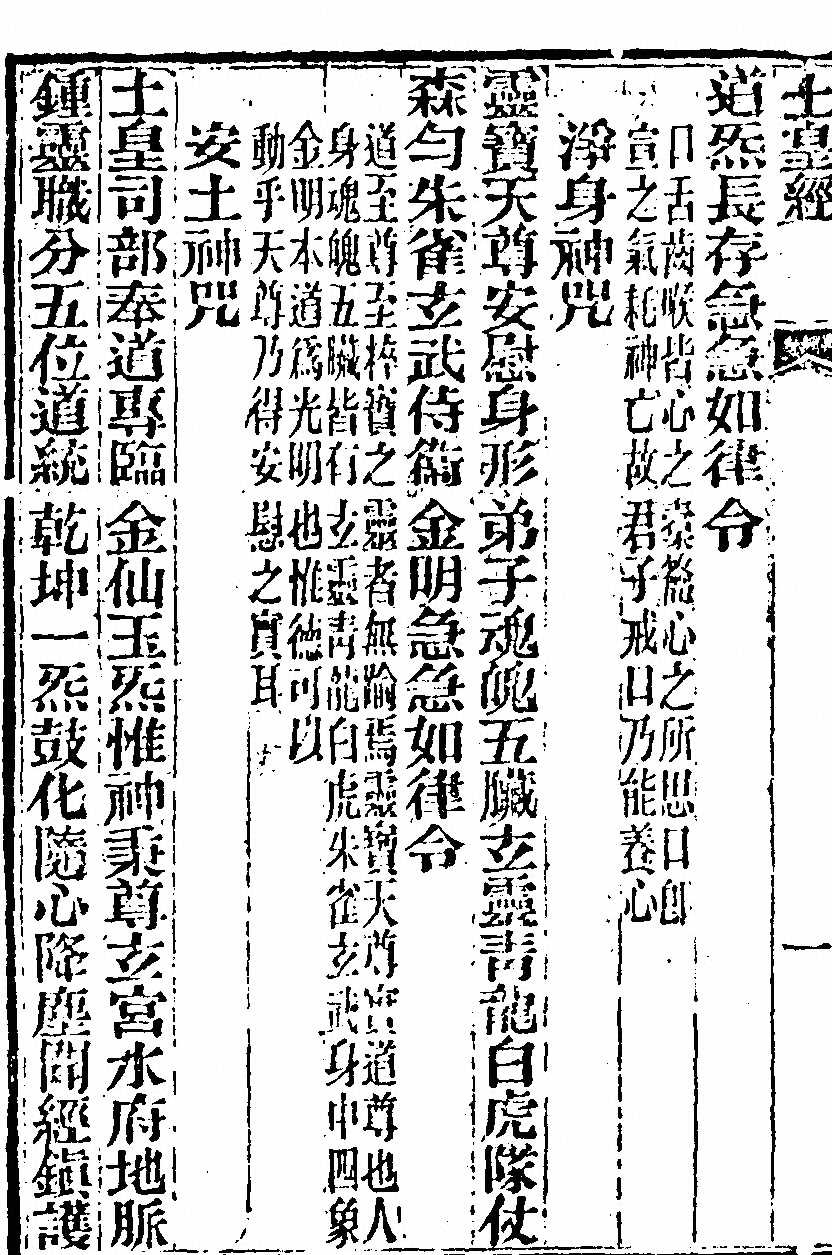 土皇經
一
道炁長存急急如律令
口舌齒喉皆心之橐籥心之所思口卽
宣之氣耗神亡故君子戒口乃能養心
淨身神咒
靈寶天尊安慰身形弟子魂魄五臟玄靈青龍白虎隊仗
森勻朱雀玄武侍衛金明急急如律令
道至尊至粹寶之靈者無踰焉靈寶天尊實道尊也人
身魂魄五臟皆有玄靈青龍白虎朱雀玄武身中四象
金明本道爲光明也惟德可以
動乎天尊乃得安慰之實耳
安土神咒
土皇司部奉道專臨金仙玉炁惟神秉尊玄宮水府地脈
鍾靈職分五位道統乾坤一炁鼓化隨心降塵開經鎮護